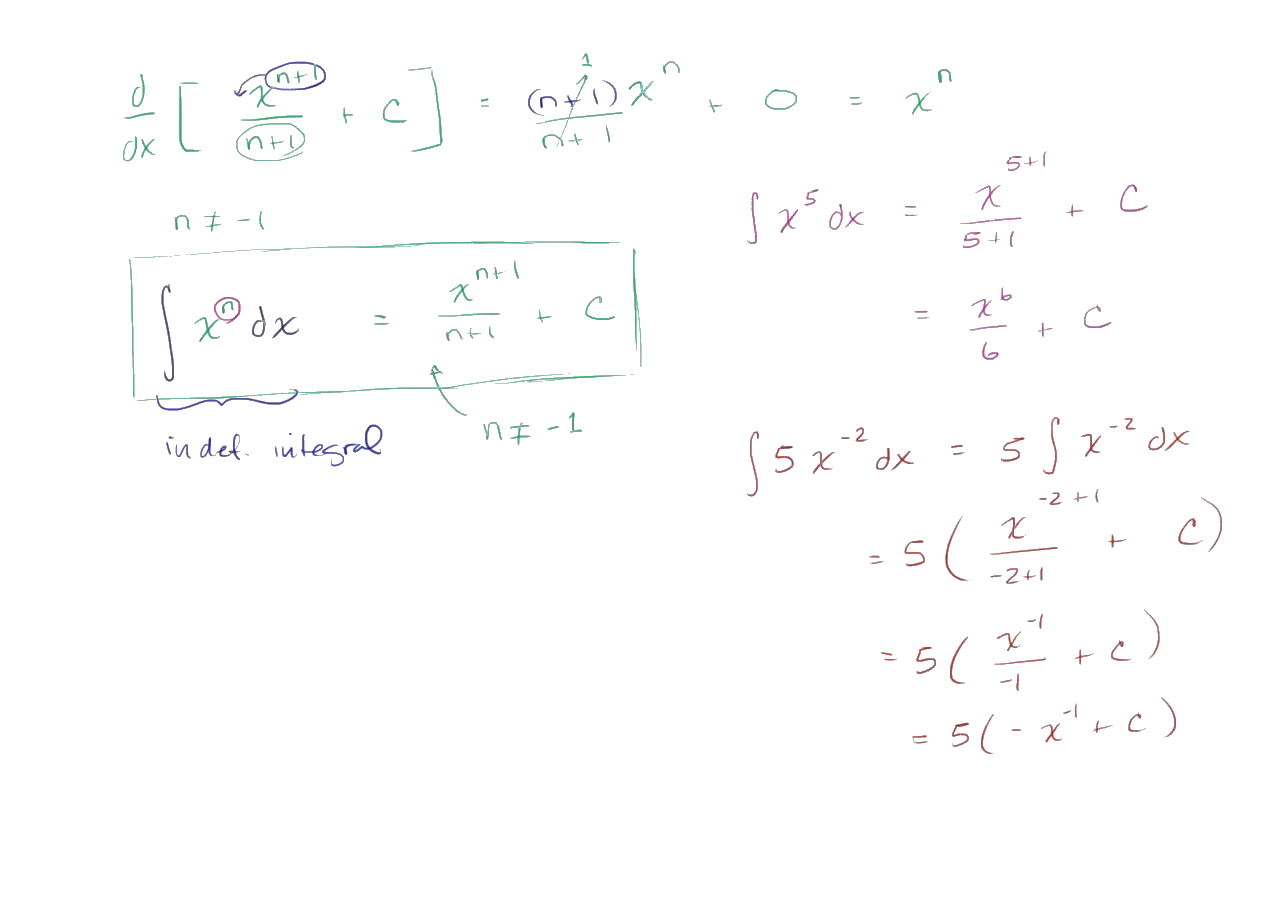 d/dx [ x^(n+1)/(n+1) + C ] = (n+1)x^n/(n+1) 1 + 0 = x^n
n ≠ -1
∫ x^n dx = x^(n+1)/(n+1) + C
n ≠ -1
indef. integral
∫ x^5 dx = x^(5+1)/(5+1) + C
= x^6/6 + C
∫ 5 x^(-2) dx = 5 ∫ x^(-2) dx
= 5 ( x^(-2+1)/(-2+1) + C )
= 5 ( x^(-1)/(-1) + C )
= 5 ( - x^(-1) + C )